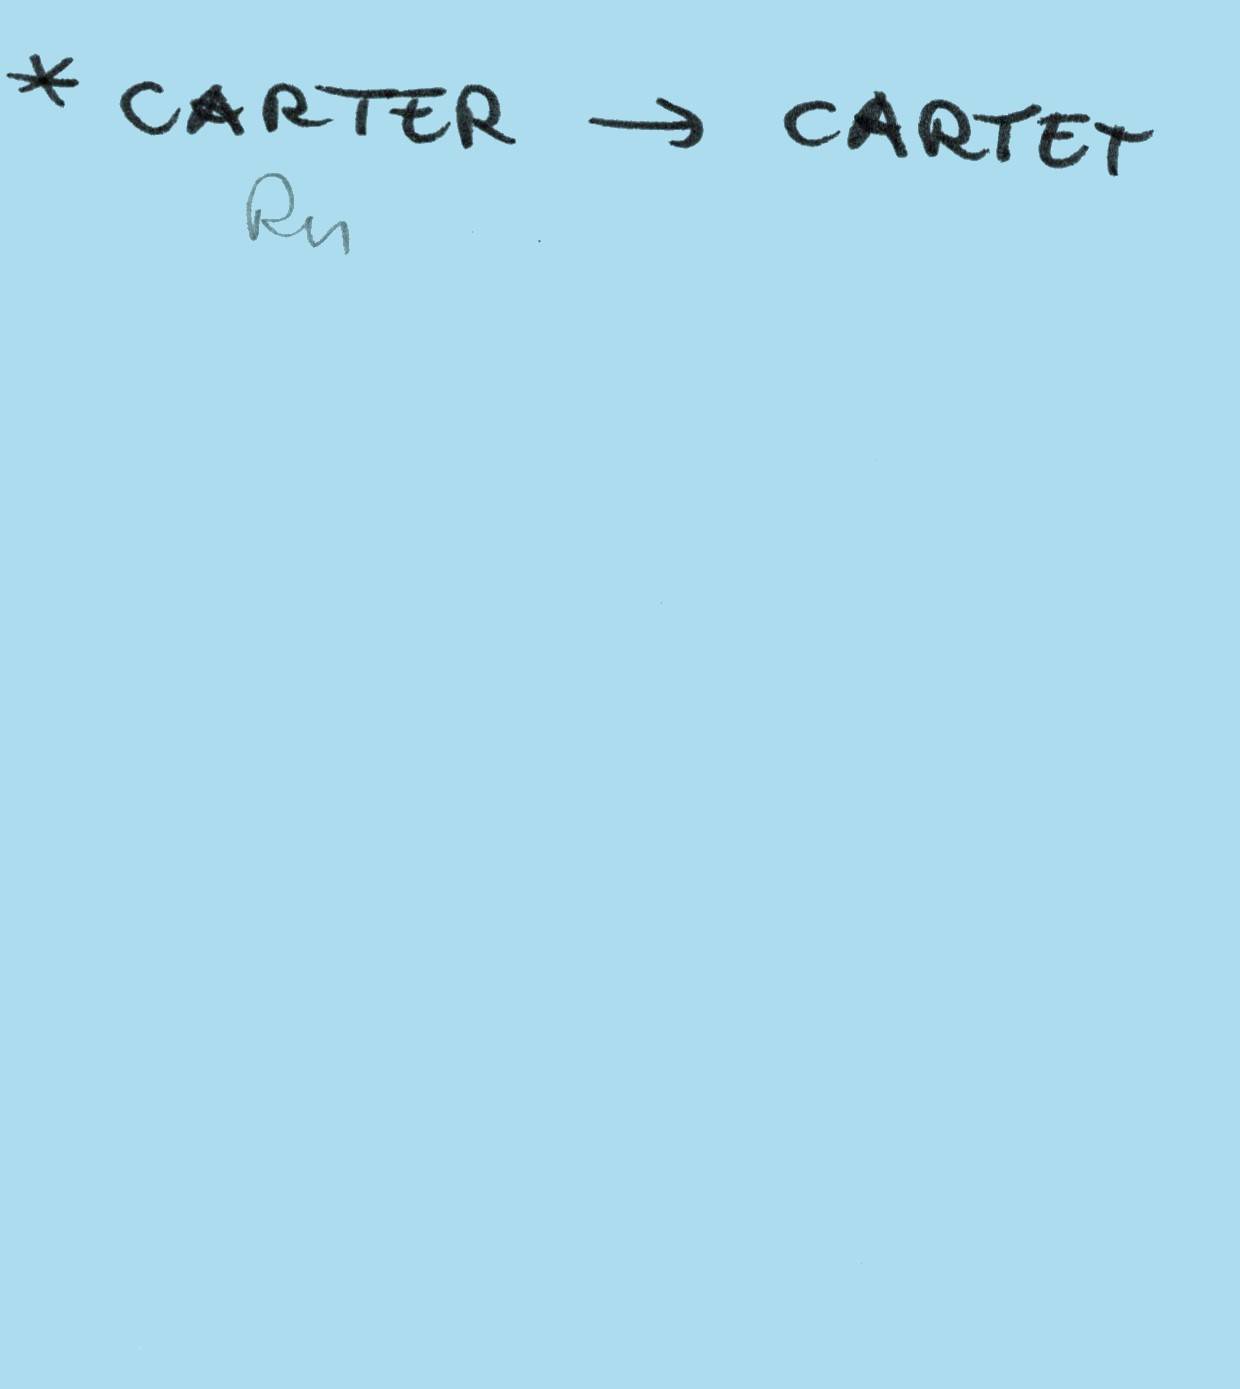 * CARTER → CARTET